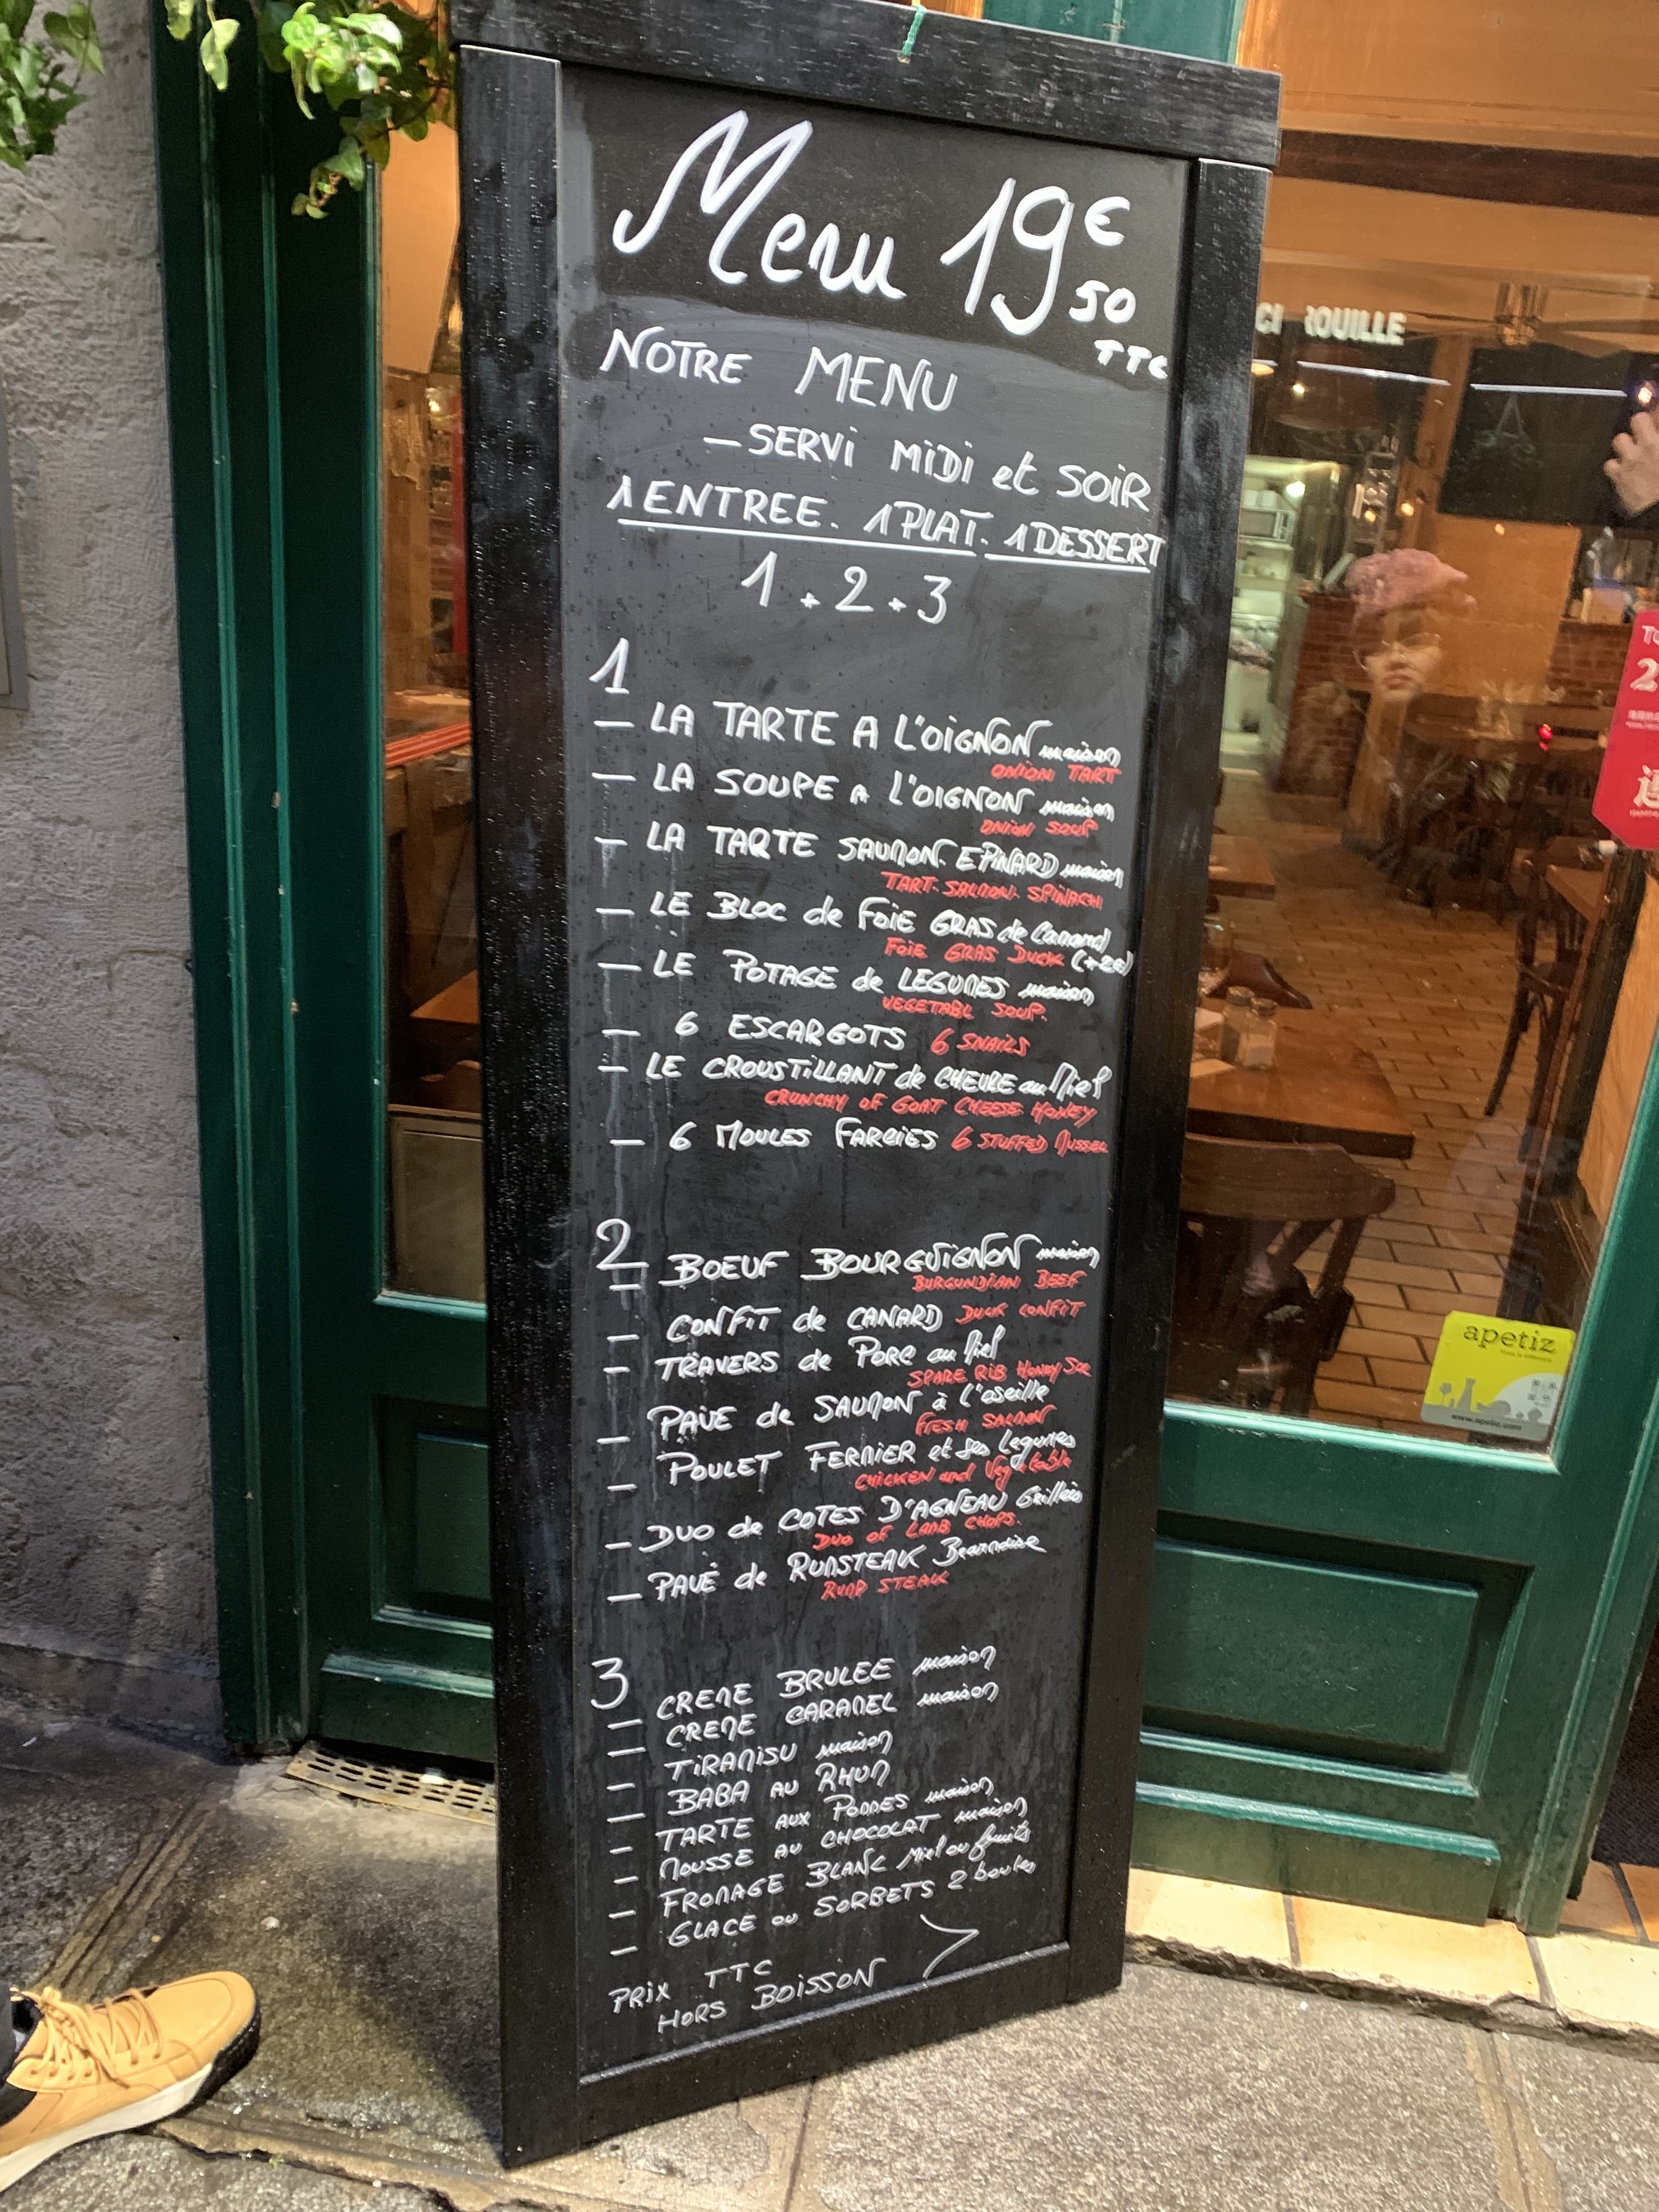 Menu 19€50
TTC
NOTRE MENU
- SERVI MIDI et SOIR
1 ENTREE. 1 PLAT. 1 DESSERT
1 + 2 + 3
1
- LA TARTE A L'OIGNON maison
ONION TART
- LA SOUPE A L'OIGNON maison
ONION SOUP
- LA TARTE SAUMON. EPINARD maison
TART. SALMON. SPINACH
- LE BLOC de FOIE GRAS de Canard
FOIE GRAS DUCK (+2€)
- LE POTAGE de LEGUMES maison
VEGETABL SOUP.
- 6 ESCARGOTS 6 SNAILS
- LE CROUSTILLANT de CHEVRE au Miel
CRUNCHY OF GOAT CHEESE HONEY
- 6 MOULES FARCIES 6 STUFFED MUSSEL
2
- BOEUF BOURGUIGNON maison
BURGUNDIAN BEEF
- CONFIT de CANARD DUCK CONFIT
- TRAVERS de PORC au Miel
SPARE RIB HONEY SCE
- PAVE de SAUMON à l'oseille
FRESH SALMON
- POULET FERMIER et ses Legumes
CHICKEN and Vegetable
- DUO de COTES D'AGNEAU Grillés
DUO OF LAMB CHOPS.
- PAVÉ de RUMSTEAK Bearnaise
RUMP STEAK
3
- CREME BRULEE maison
- CREME CARAMEL maison
- TIRAMISU maison
- BABA AU RHUM
- TARTE AUX POMMES maison
- MOUSSE AU CHOCOLAT maison
- FROMAGE BLANC Miel ou fruits
- GLACE ou SORBETS 2 boules
PRIX TTC
HORS BOISSON >
ROUILLE
apetiz
www.apetiz.com